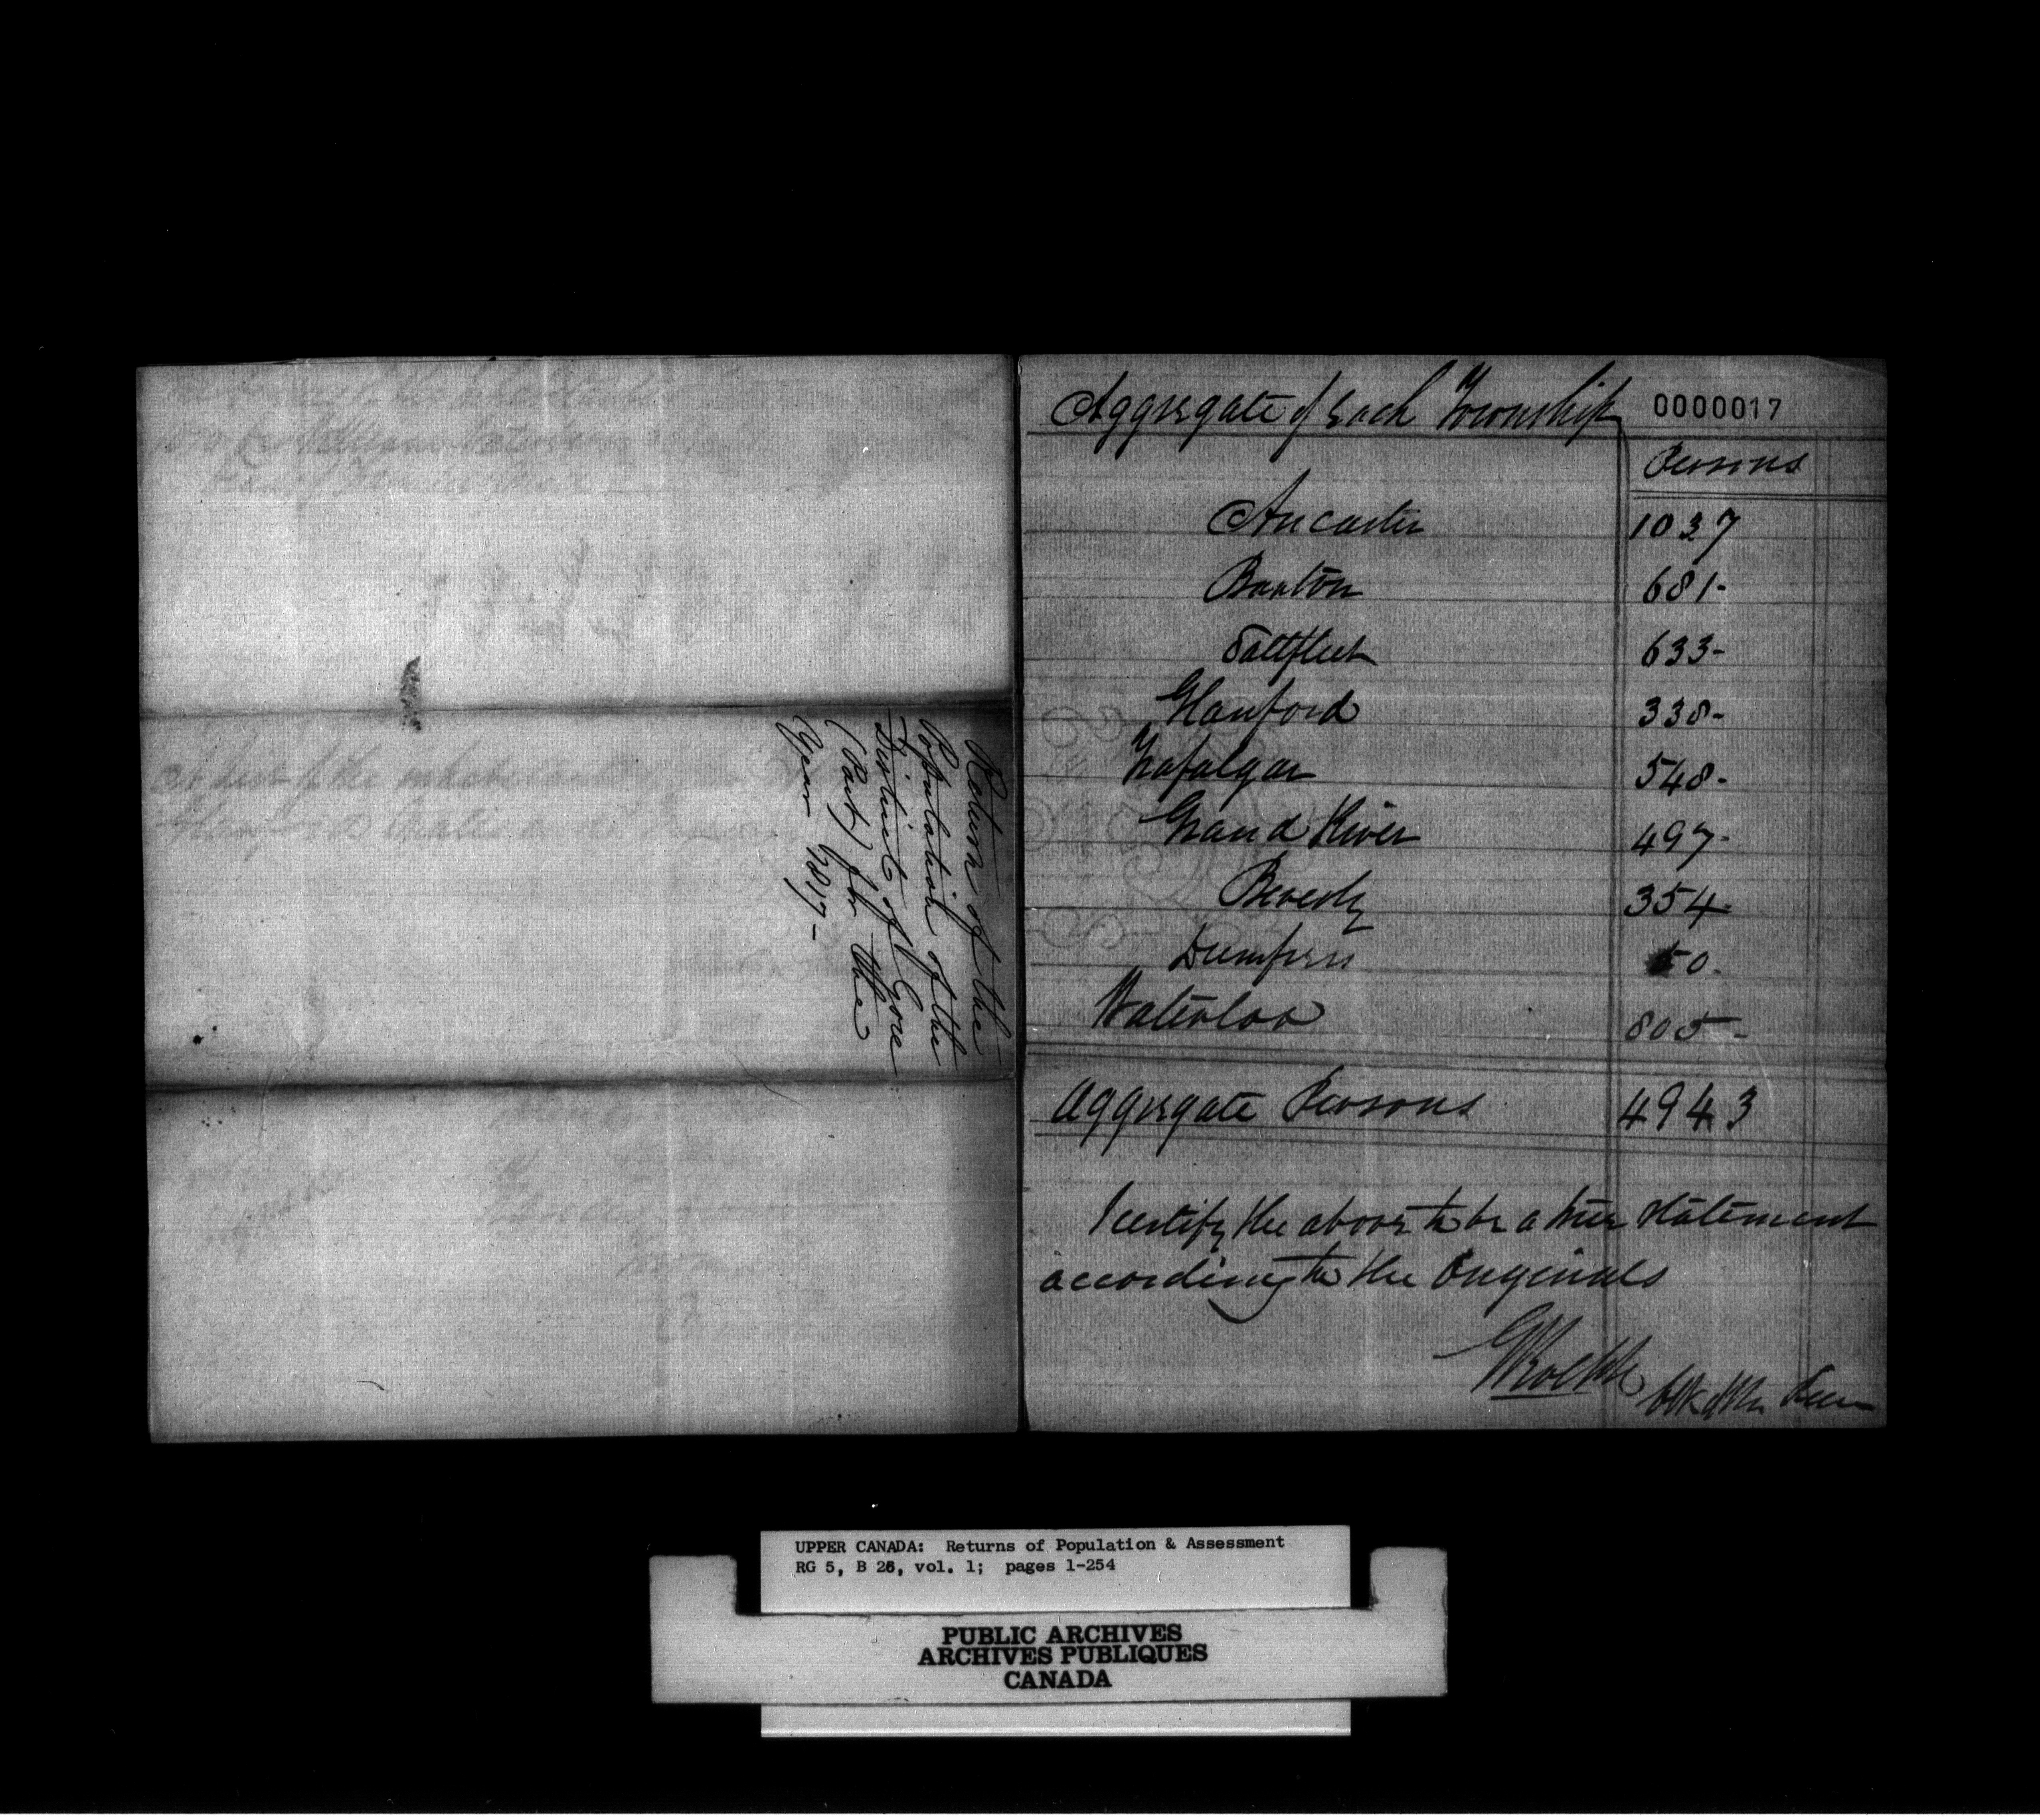 Return of the
Population of the
District of Gore
(Part) for the
Year 1817-
Aggregate of Each Township
0000017
Persons
Ancaster 1037
Barton 681-
Saltfleet 633-
Glanford 338-
Trafalgar 548-
Grand River 497-
Beverly 354-
Dumfries 50-
Waterloo 805-
Aggregate Persons 4943
I certify the above to be a true statement
according to the Originals
G Rolph Clk of the Peace
UPPER CANADA: Returns of Population & Assessment
RG 5, B 26, vol. 1; pages 1-254
PUBLIC ARCHIVES
ARCHIVES PUBLIQUES
CANADA